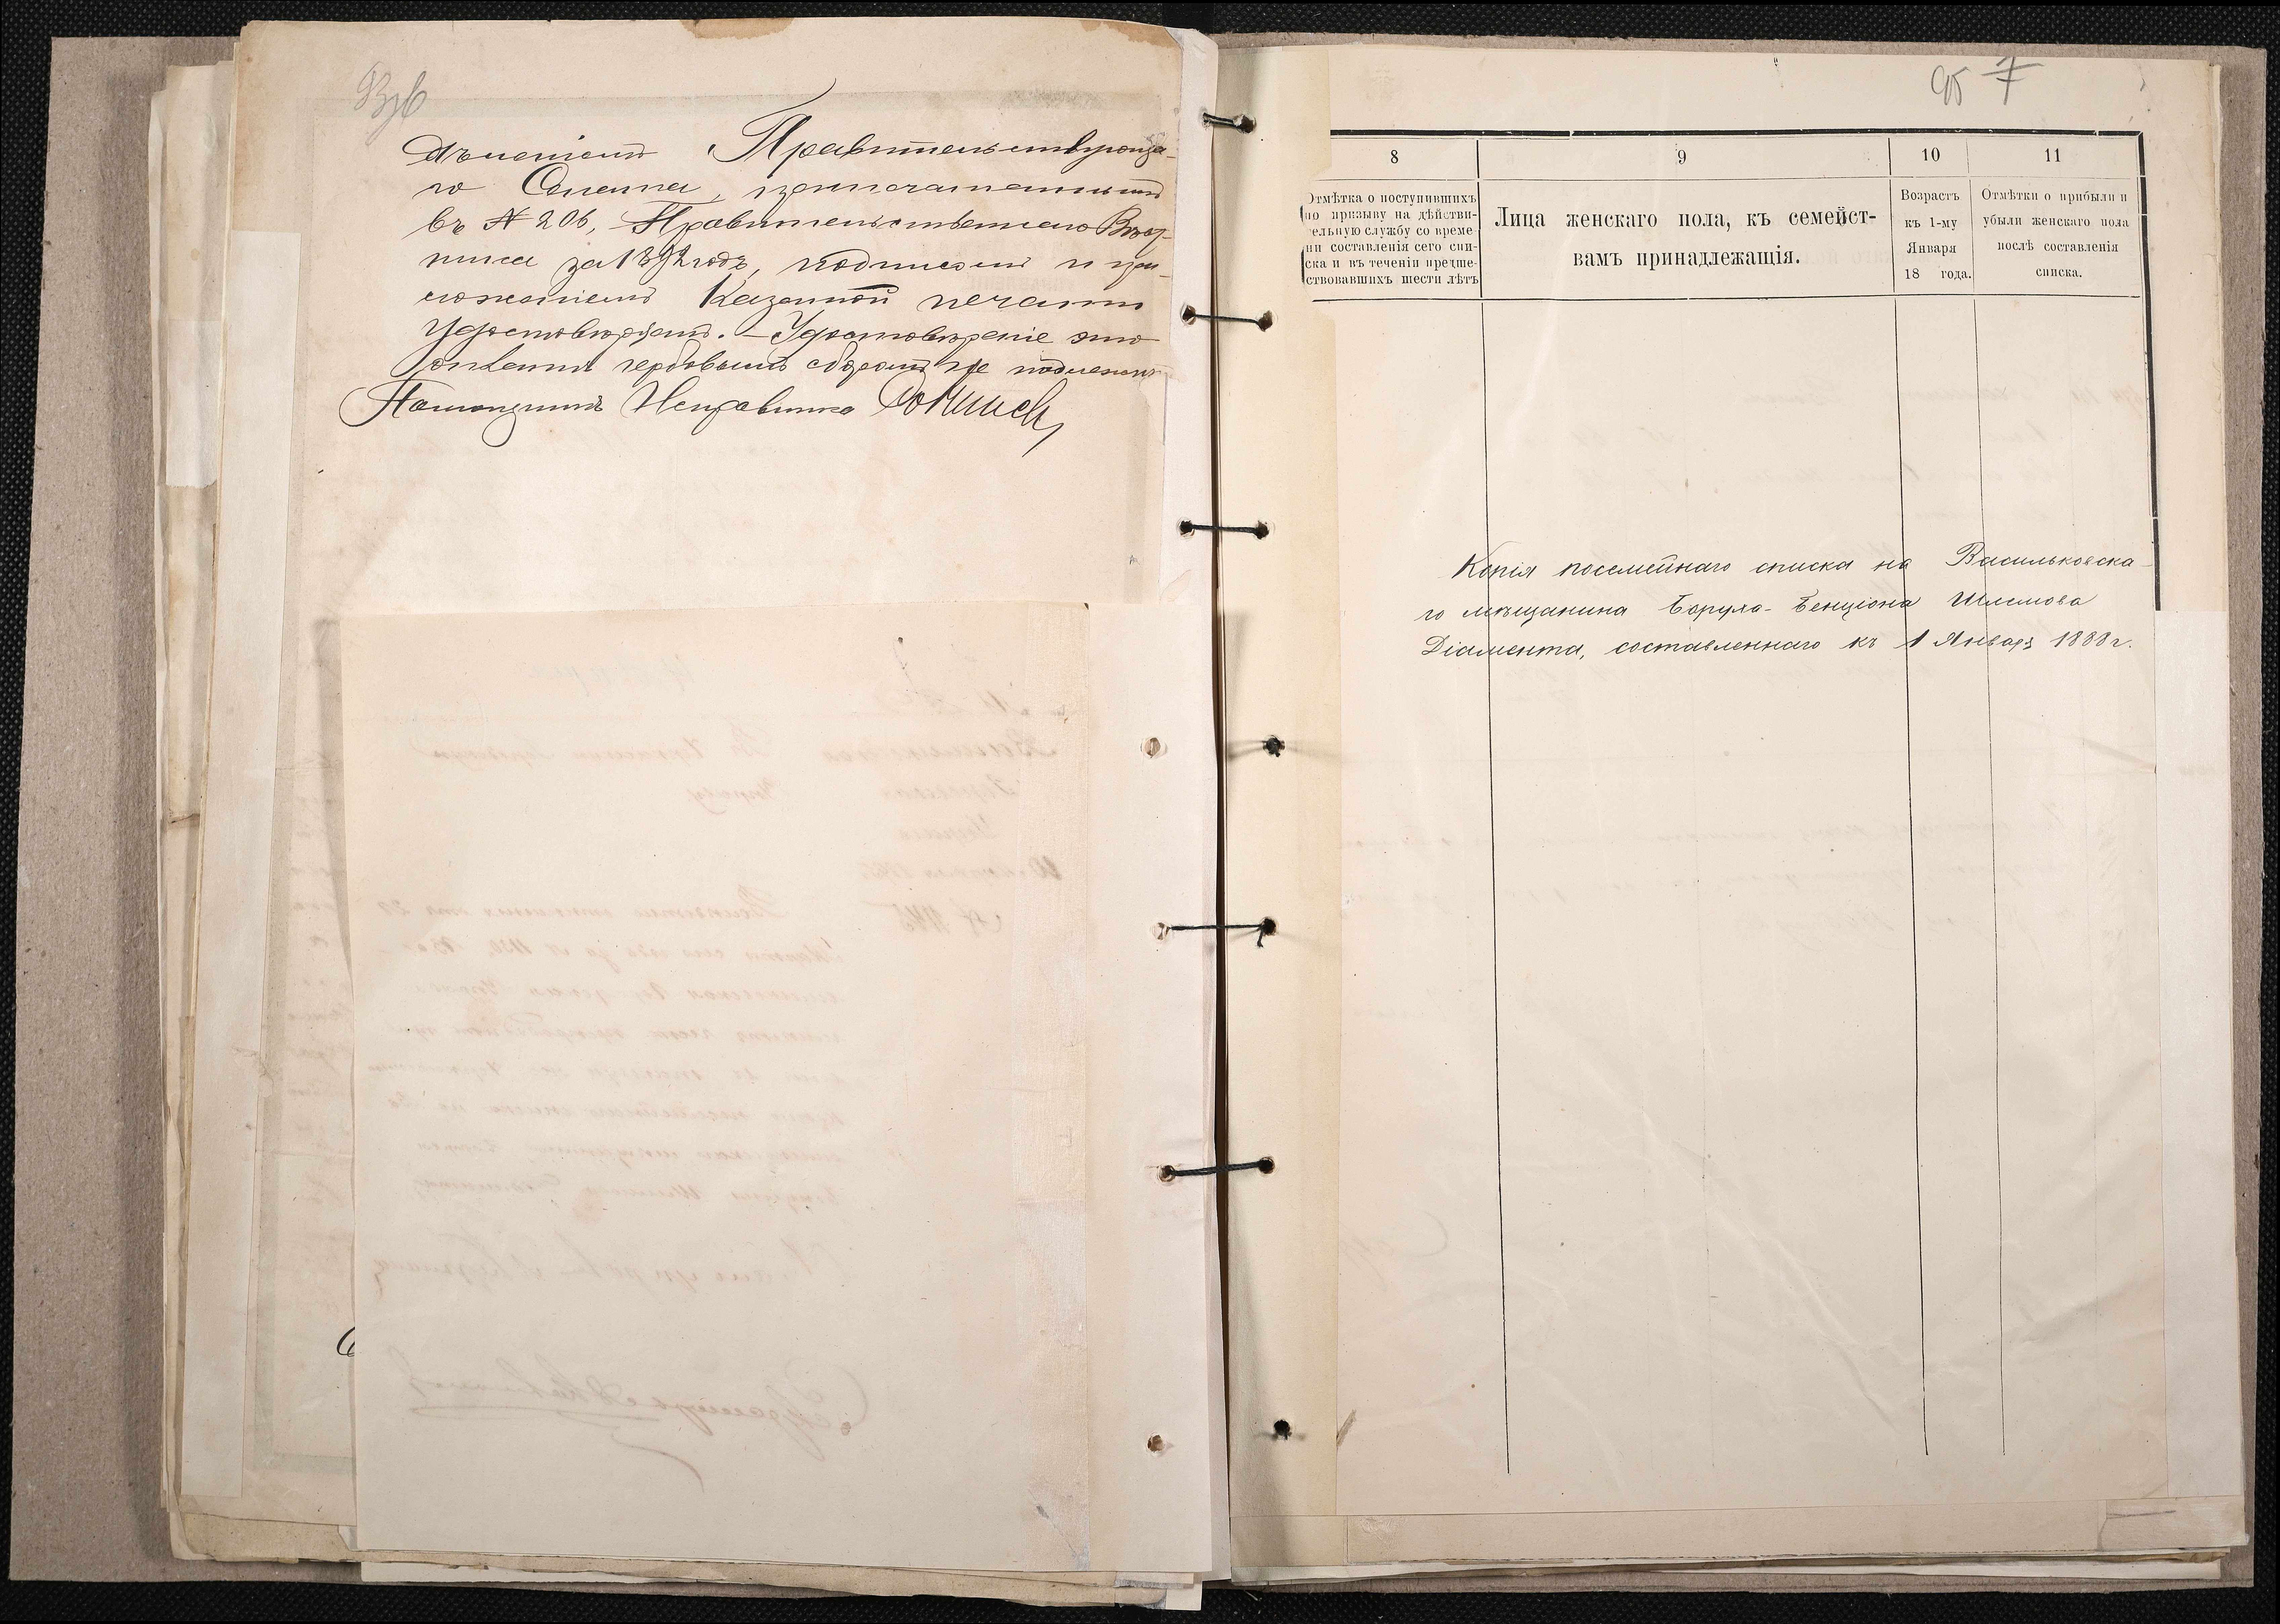 93 об
дъленіемъ Правительствующа-
го Сената, напечатаннымъ
въ № 206, Правительственнаго Вѣст-
ника за 1892 годъ, подписомъ и при-
ложеніемъ Казенной печати
удостовѣряетъ. – Удостовѣреніе это
гербовымъ сборомъ не подлежитъ
Помощникъ Исправника
95 7
8 9 10 11
Отмѣтка о поступившихъ
по призыву на дѣйстви-
тельную службу со време-
ни составленія сего спи-
ска и въ теченіи предше-
ствовавшихъ шести лѣтъ
Лица женскаго пола, къ семейст-
вамъ принадлежащія.
Возрастъ
къ 1-му
Января
18 года.
Отмѣтки о прибыли и
убыли женскаго пола
послѣ составленія
списка.
Копія посемейнаго списка на Васильковска-
го мѣщанина Боруха-Бенціона Шлемова
Діамента, составленнаго къ 1 Января 1888 г.